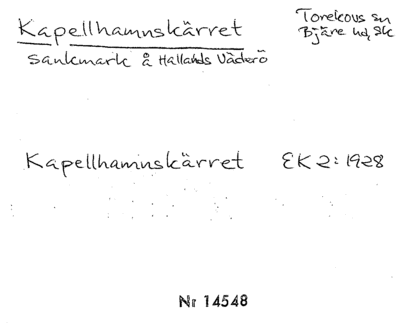 Kapellhamnskärret
Torekovs sn
Bjäre hd, Sk
Sankmark å Hallands Väderö
Kapellhamnskärret EK 2: 1928
Nr 14548